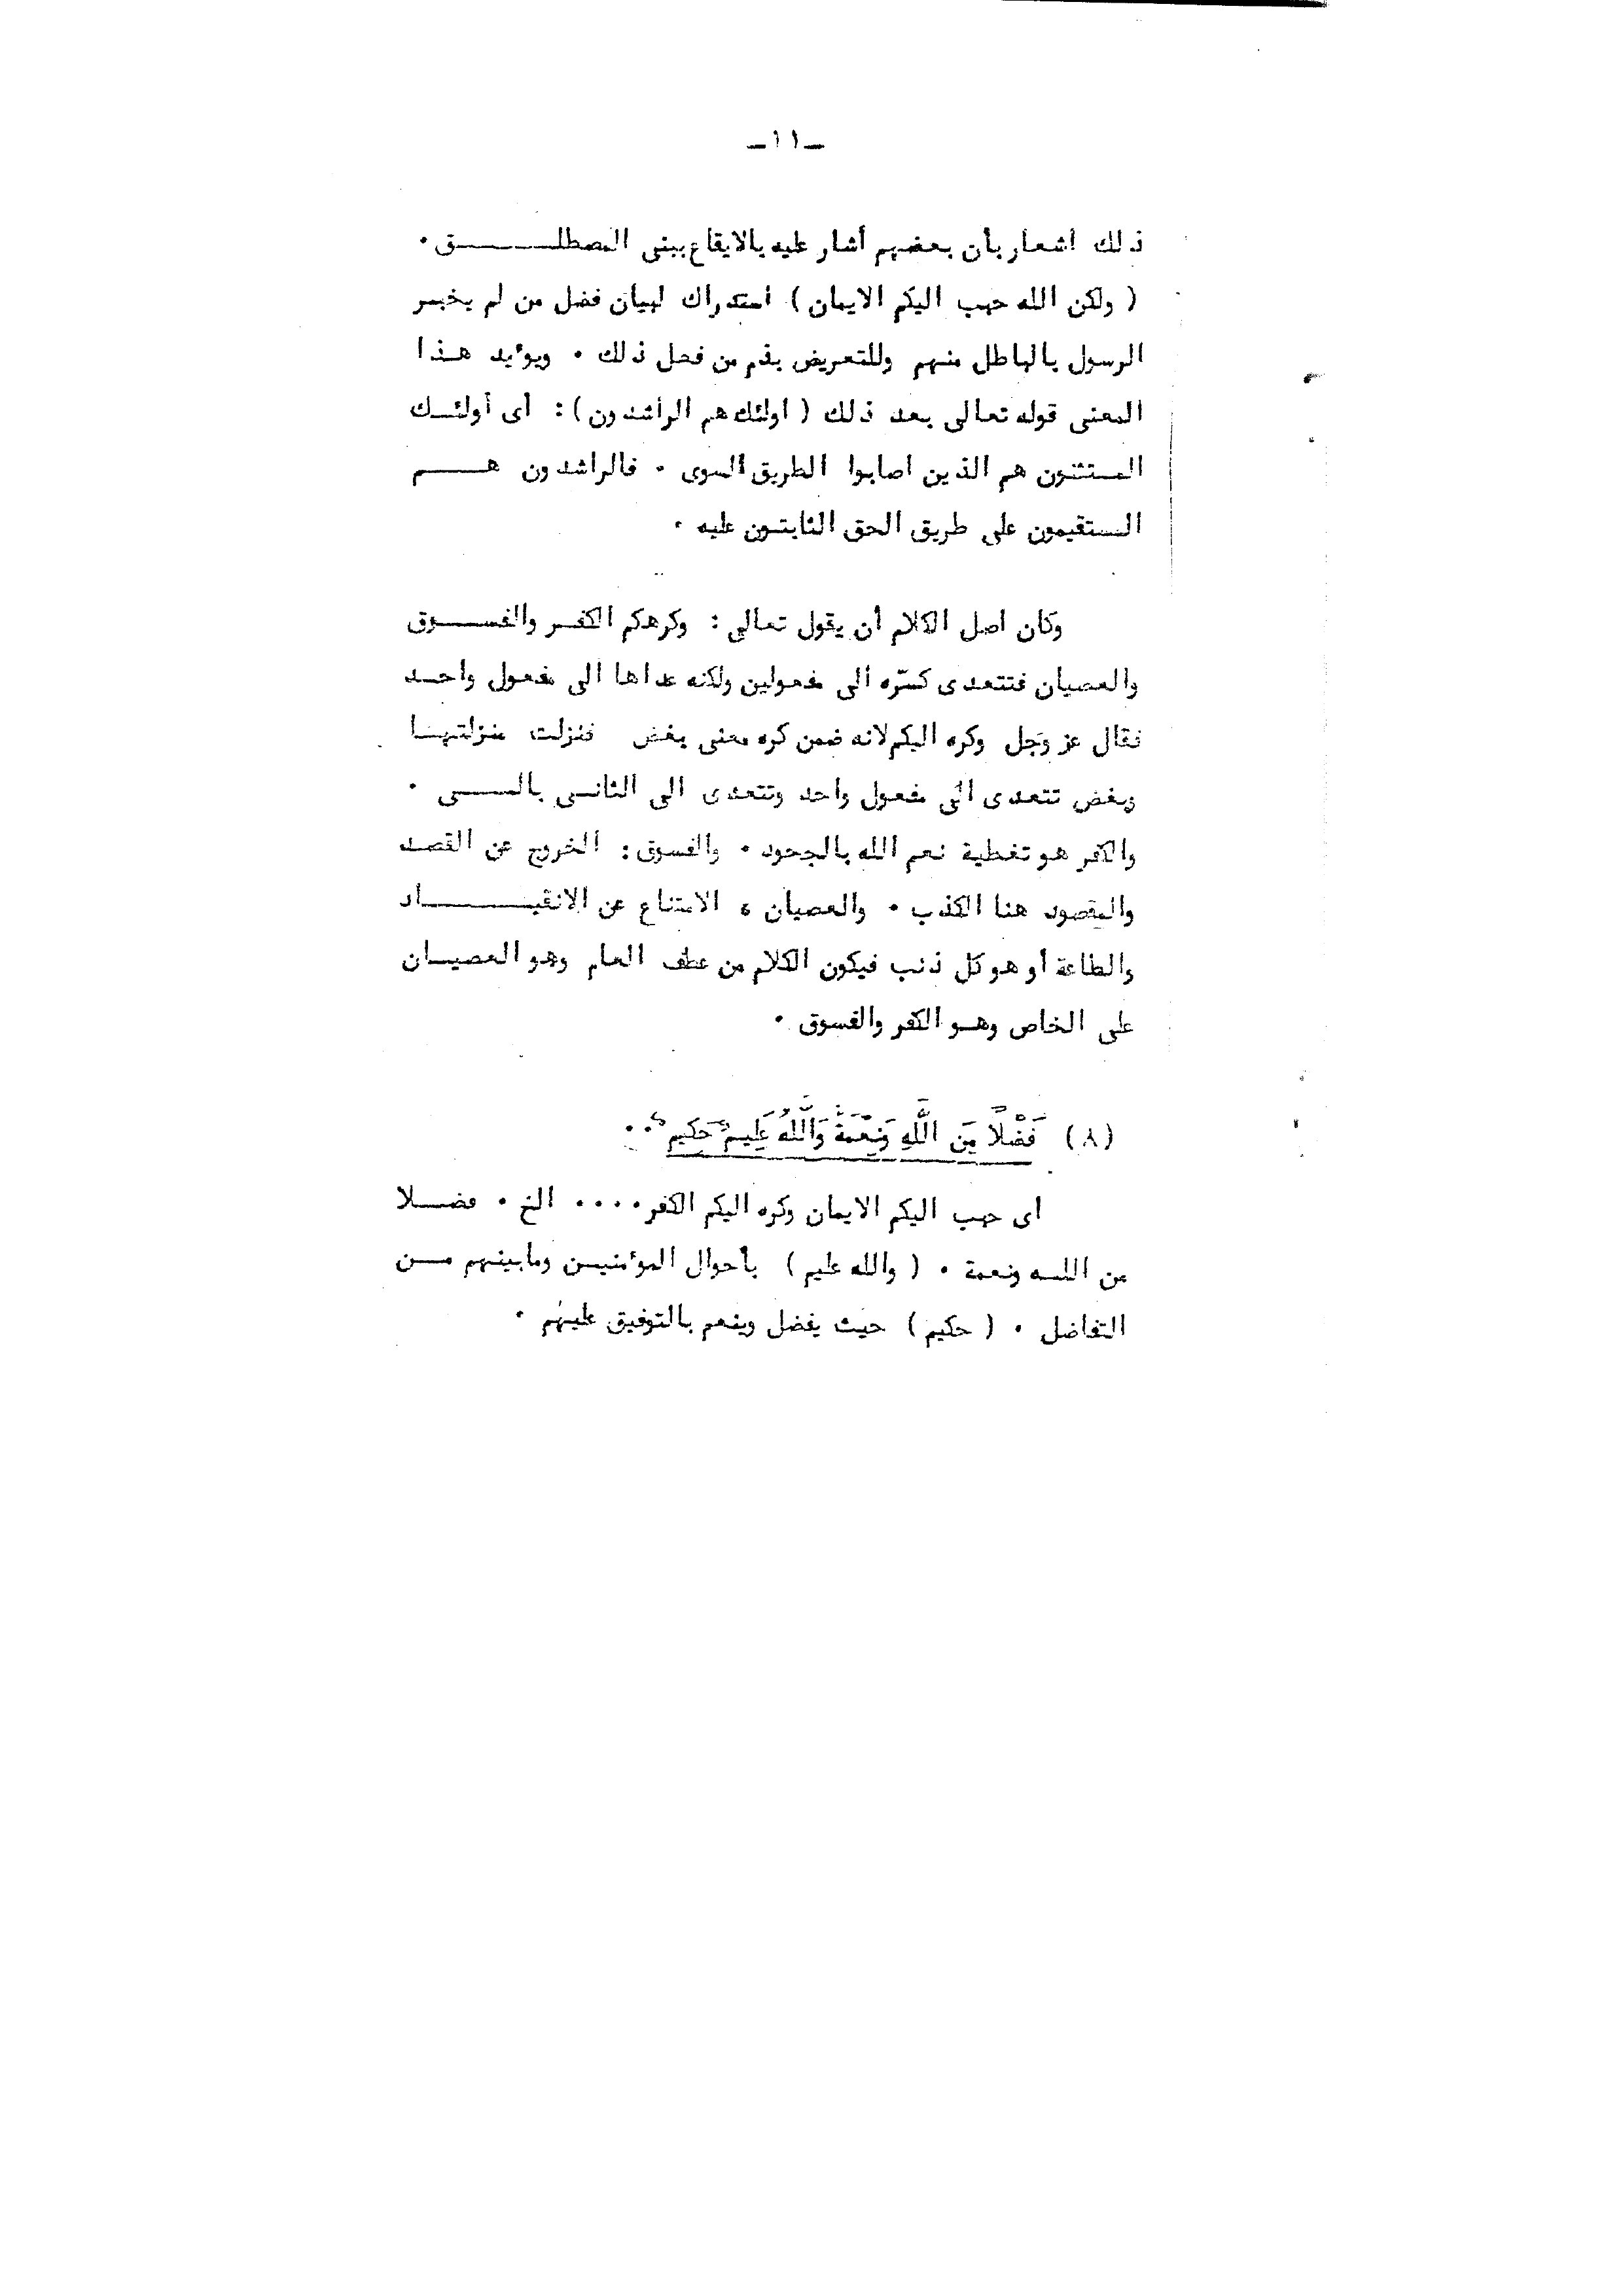 ـ١١ـ
ذلك اشعار بأن بعضهم أشار عليه بالايقاع ببنى المصطلــــــق .
( ولكن الله حبب اليكم الايمان ) استدراك لبيان فضل من لم يخبر
الرسول بالباطل منهم وللتعريض بذم من فعل ذلك . ويؤيد هـذا
المعنى قوله تعالى بعد ذلك ( أولئك هم الراشدون ) : أى أولئـك
المستثنون هم الذين اصابوا الطريق السوى . فالراشدون هـــم
المستقيمون على طريق الحق الثابتون عليه .
وكان اصل الكلام أن يقول تعالى : وكرهكم الكفـر والفســوق
والعصيان فتتعدى كـرّه الى مفعولين ولكنه عداها الى مفعول واحـد
فقال عز وجل وكره اليكم لانه ضمن كره معنى بغض فنزلت منزلتهـا
وبغض تتعدى الى مفعول واحد وتتعدى الى الثانـى بالــى .
والكفر هو تغطية نعم الله بالجحود . والفسوق : الخروج عن القصـد
والمقصود هنا الكذب . والعصيان ، الامتناع عن الانقيــــاد
والطاعة أو هو كل ذنب فيكون الكلام من عطف العام وهو العصيـان
على الخاص وهـو الكفر والفسوق .
(٨) فَضْلاً مِّنَ اللَّهِ وَنِعْمَةً وَاللَّهُ عَلِيمٌ حَكِيمٌ ..
اى حبب اليكم الايمان وكره اليكم الكفر .... الخ . فضـلا
من اللـه ونعمة . ( والله عليم ) بأحوال المؤمنيـن ومابينهم مـن
التفاضل . ( حكيم ) حيث يفضل وينعم بالتوفيق عليهم .